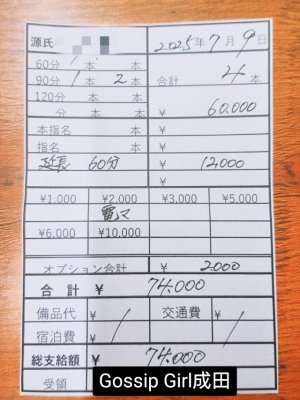 源氏 2025年7月9日
60分 1本 本 合計 4本
90分 1本 2本
120分 本 本 ¥ 60,000
分 本 本 ¥
本指名 ¥
指名 本 ¥
延長 60分 ¥ 12,000
¥
¥1,000 ¥2,000 ¥3,000 ¥5,000
電マ
¥6,000 ¥10,000
オプション合計 ¥ 2,000
合計 ¥ 74,000
備品代 ¥ / 交通費 ¥ /
宿泊費 ¥ /
総支給額 ¥ 74,000
受領
Gossip Girl成田